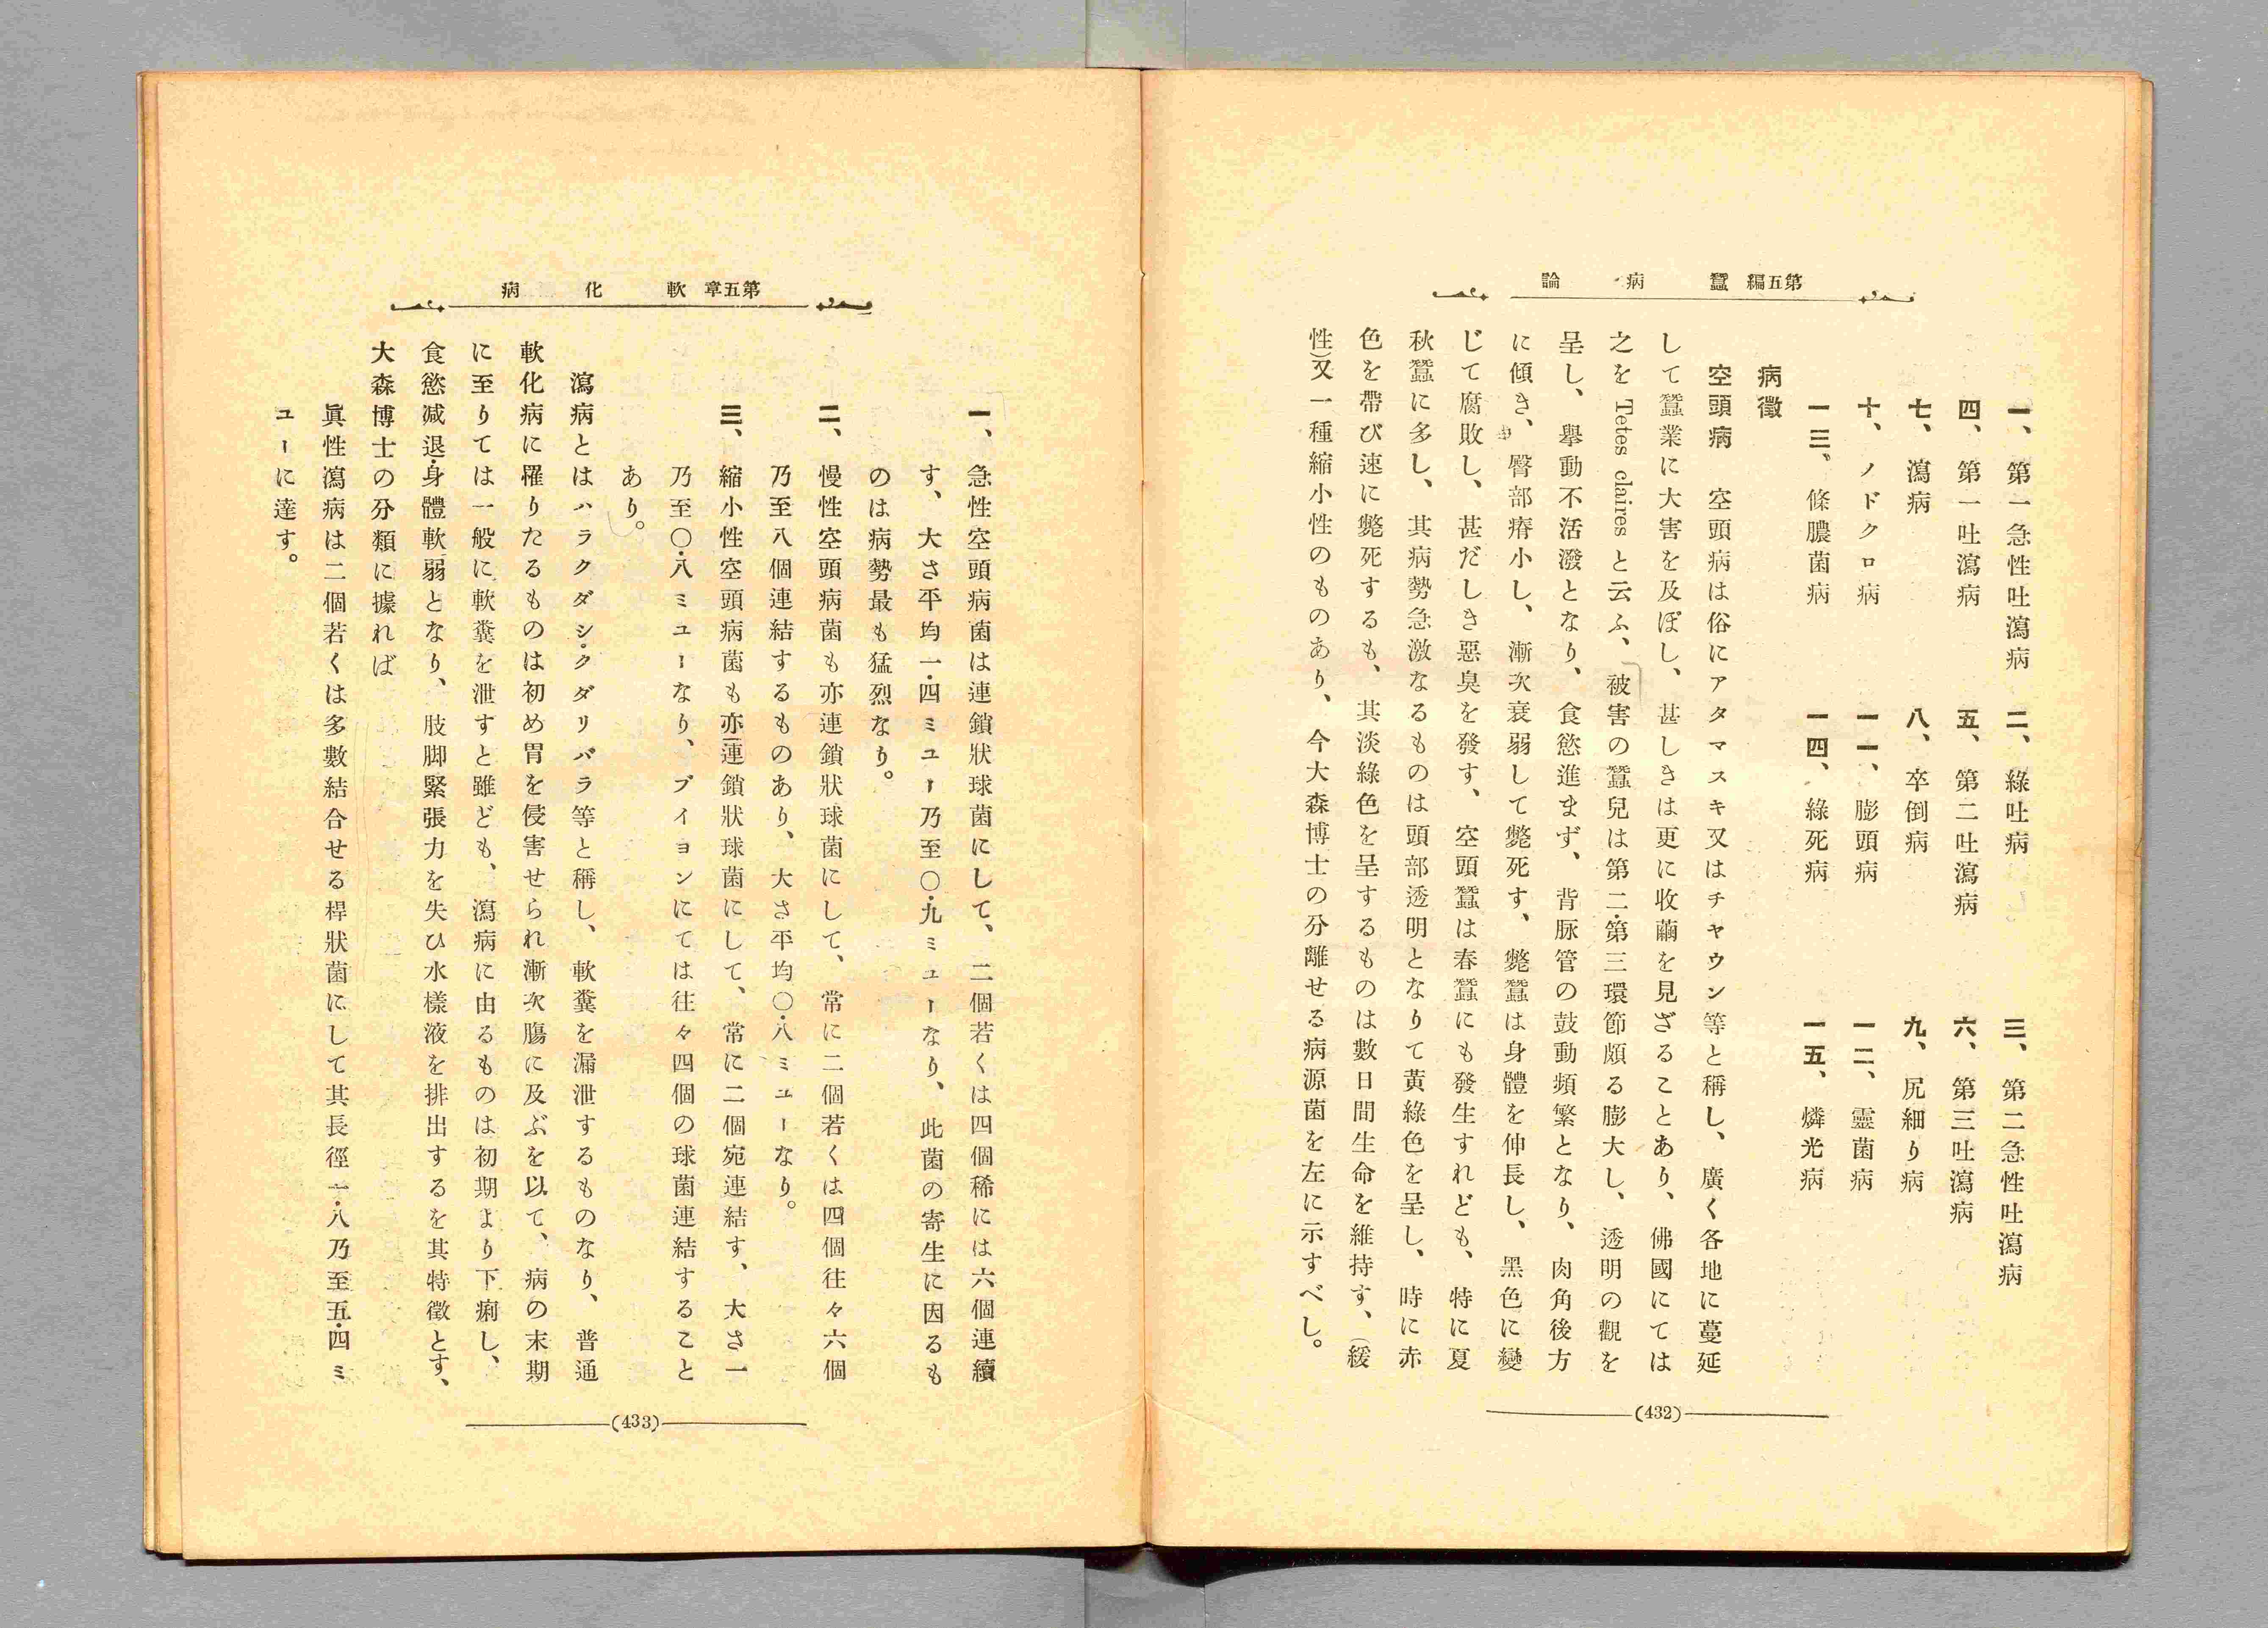 第五編 蠶病論
一、第一急性吐瀉病 二、綠吐病 三、第二急性吐瀉病
四、第一吐瀉病 五、第二吐瀉病 六、第三吐瀉病
七、瀉病 八、卒倒病 九、尻細り病
十、ノドクロ病 一一、膨頭病 一二、靈菌病
一三、條膿菌病 一四、綠死病 一五、燐光病
病徵
空頭病 空頭病は俗にアタマスキ又はチャウン等と稱し、廣く各地に蔓延
して蠶業に大害を及ぼし、甚しきは更に收繭を見ざることあり、佛國にては
之を Tetes claires と云ふ、被害の蠶兒は第二・第三環節頗る膨大し、透明の觀を
呈し、擧動不活潑となり、食慾進まず、背脉管の鼓動頻繁となり、肉角後方
に傾き、臀部瘠小し、漸次衰弱して斃死す、斃蠶は身體を伸長し、黑色に變
じて腐敗し、甚だしき惡臭を發す、空頭蠶は春蠶にも發生すれども、特に夏
秋蠶に多し、其病勢急激なるものは頭部透明となりて黃綠色を呈し、時に赤
色を帶び速に斃死するも、其淡綠色を呈するものは數日間生命を維持す、(緩
性)又一種縮小性のものあり、今大森博士の分離せる病源菌を左に示すべし。
(432)
第五章 軟化病
一、急性空頭病菌は連鎖狀球菌にして、二個若くは四個稀には六個連續
す、大さ平均一・四ミユー乃至〇・九ミユーなり、此菌の寄生に因るも
のは病勢最も猛烈なり。
二、慢性空頭病菌も亦連鎖狀球菌にして、常に二個若くは四個往々六個
乃至八個連結するものあり、大さ平均〇・八ミユーなり。
三、縮小性空頭病菌も亦連鎖狀球菌にして、常に二個宛連結す、大さ一
乃至〇・八ミユーなり、ブイヨンにては往々四個の球菌連結すること
あり。
瀉病とはハラクダシ・クダリバラ等と稱し、軟糞を漏泄するものなり、普通
軟化病に罹りたるものは初め胃を侵害せられ漸次膓に及ぶを以て、病の末期
に至りては一般に軟糞を泄すと雖ども、瀉病に由るものは初期より下痢し、
食慾減退・身體軟弱となり、肢脚緊張力を失ひ水樣液を排出するを其特徵とす、
大森博士の分類に據れば
眞性瀉病は二個若くは多數結合せる桿狀菌にして其長徑一・八乃至五・四ミ
ユーに達す。
(433)